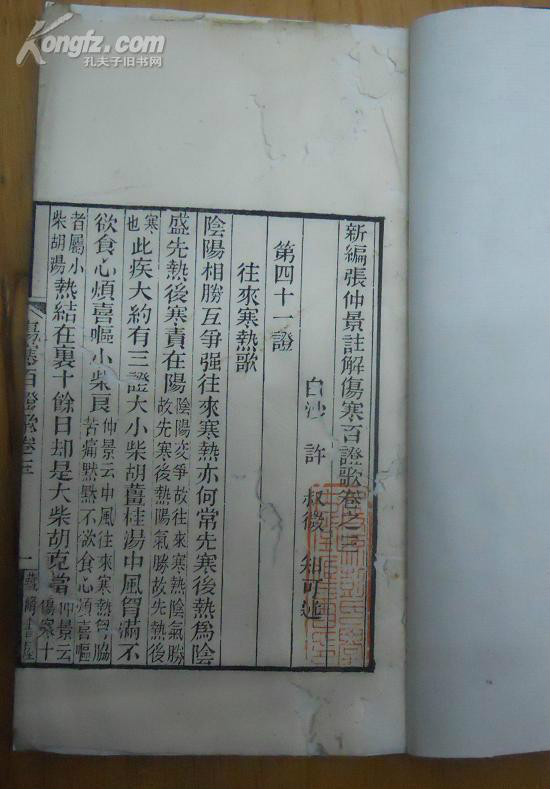 Kongfz.com
孔夫子旧书网
新編張仲景註解傷寒百證歌卷之三
白沙 許 叔微 知可述
第四十一證
往來寒熱歌
陰陽相勝互爭强往來寒熱亦何常先寒後熱爲陰
盛先熱後寒責在陽
陰陽交爭故往來寒熱陰氣勝
故先寒後熱陽氣勝故先熱後
寒
也
此疾大約有三證大小柴胡薑桂湯中風胷滿不
欲食心煩喜嘔小柴良
仲景云中風往來寒熱胷脇
苦痛黙黙不欲食心煩喜嘔
者屬小
柴胡湯
熱結在裏十餘日却是大柴胡克當
仲景云
傷寒十
傷寒百證歌卷三
一